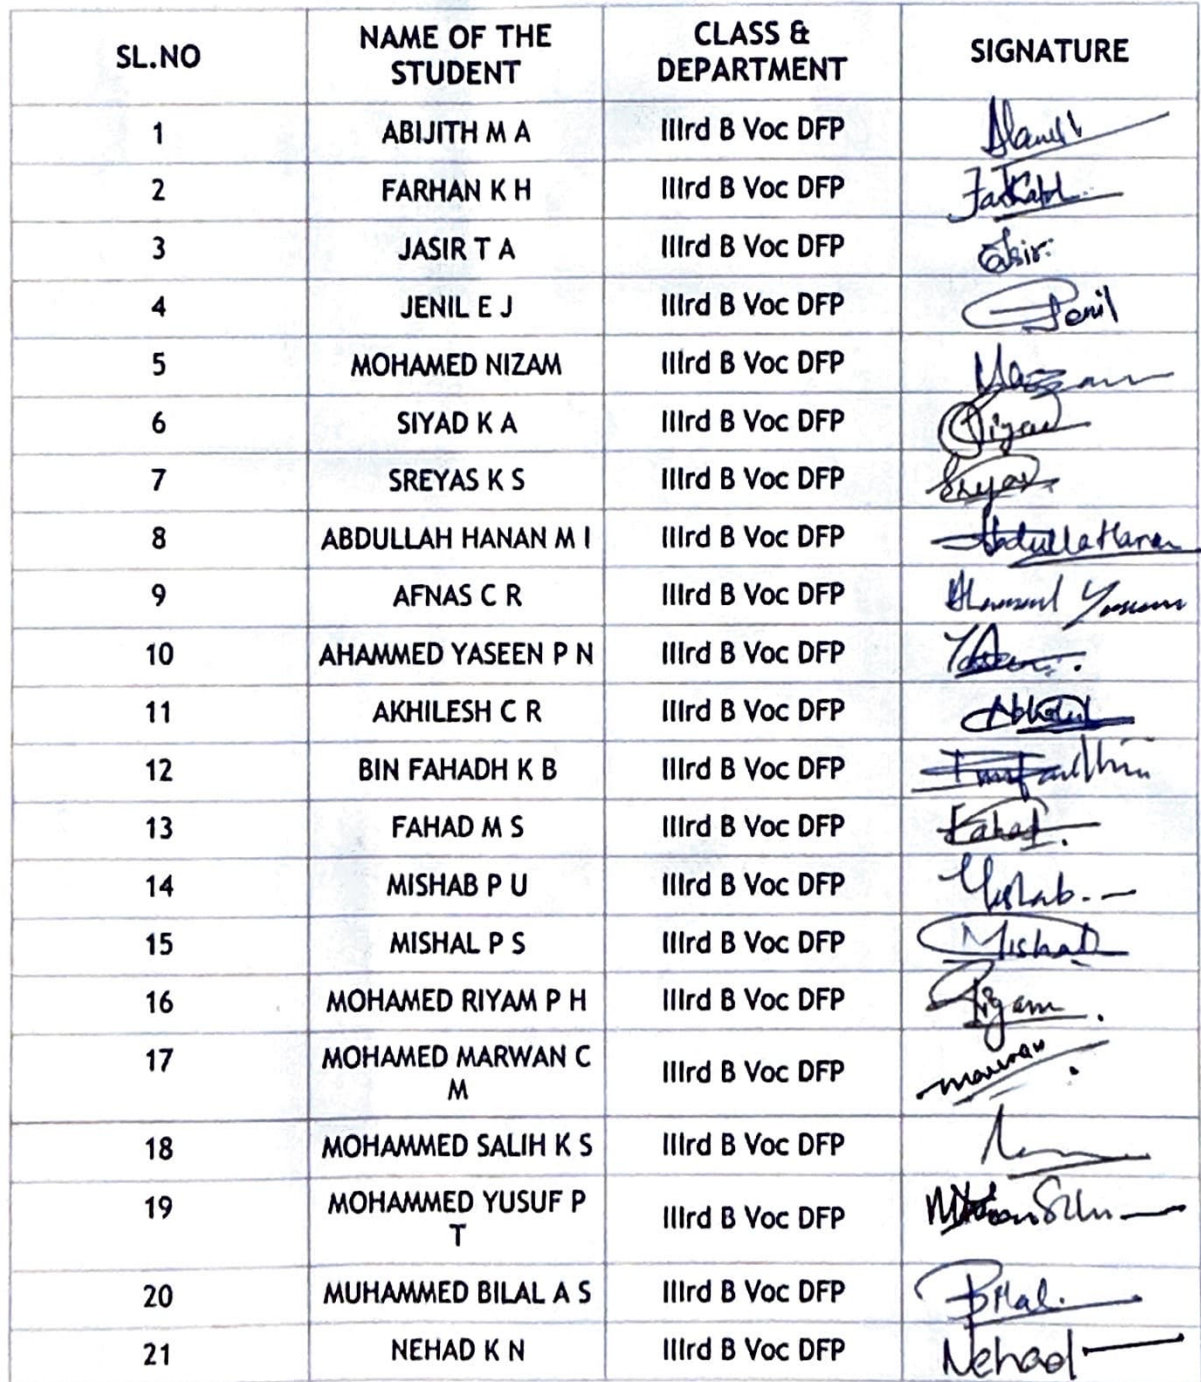 SL.NO NAME OF THE STUDENT CLASS & DEPARTMENT SIGNATURE
1 ABIJITH M A IIIrd B Voc DFP
2 FARHAN K H IIIrd B Voc DFP
3 JASIR T A IIIrd B Voc DFP
4 JENIL E J IIIrd B Voc DFP Jenil
5 MOHAMED NIZAM IIIrd B Voc DFP
6 SIYAD K A IIIrd B Voc DFP
7 SREYAS K S IIIrd B Voc DFP
8 ABDULLAH HANAN M I IIIrd B Voc DFP
9 AFNAS C R IIIrd B Voc DFP
10 AHAMMED YASEEN P N IIIrd B Voc DFP
11 AKHILESH C R IIIrd B Voc DFP
12 BIN FAHADH K B IIIrd B Voc DFP
13 FAHAD M S IIIrd B Voc DFP Fahad.
14 MISHAB P U IIIrd B Voc DFP Mishab.
15 MISHAL P S IIIrd B Voc DFP Mishal
16 MOHAMED RIYAM P H IIIrd B Voc DFP
17 MOHAMED MARWAN C M IIIrd B Voc DFP marwan
18 MOHAMMED SALIH K S IIIrd B Voc DFP
19 MOHAMMED YUSUF P T IIIrd B Voc DFP
20 MUHAMMED BILAL A S IIIrd B Voc DFP Bilal.
21 NEHAD K N IIIrd B Voc DFP Nehad